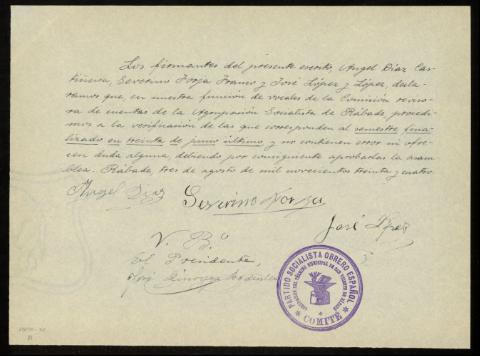 Los firmantes del presente escrito, Angel Diaz Car-
tiñeira, Severino Forja Franco y José López y López, decla-
ramos que, en nuestra función de vocales de la Comisión reviso-
ra de cuentas de la Agrupación Socialista de Rábade, procedi-
mos a la verificación de las que corresponden al semestre fina-
lizado en treinta de junio último y no contienen error ni ofre-
cen duda alguna, debiendo por consiguiente aprobarlas la asam-
blea. Rábade, tres de agosto de mil novecientos treinta y cuatro
Angel Diaz
Severino Forja
José López
V. B.º
El Presidente,
PARTIDO SOCIALISTA OBRERO ESPAÑOL
COMITÉ